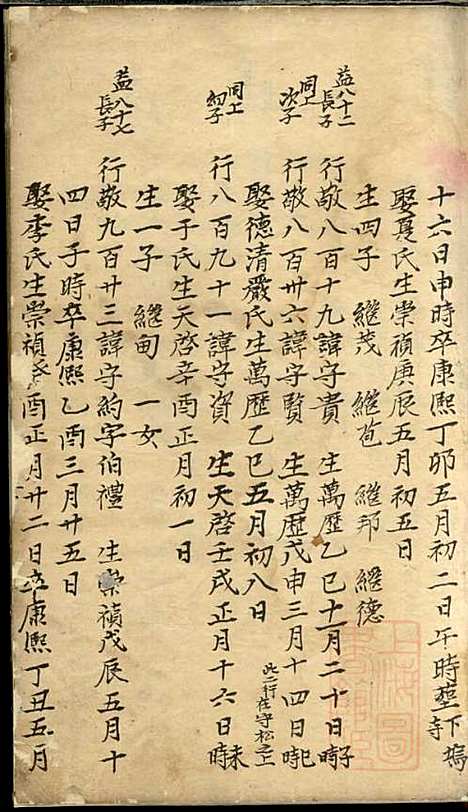 十六日申時卒康熙丁卯五月初二日午時塟下塢寺
娶夏氏生崇禎庚辰五月初五日
生四子 繼茂 繼苞 繼邦 繼德
益八十二長子 行敬八百十九諱守貴 生萬歷乙巳十一月二十日子時
同上次子 行敬八百卅六諱守賢 生萬歷戊申三月十四日巳時
娶德清嚴氏生萬歷乙巳五月初八日 此二行在守松之上
同上幼子 行八百九十一諱守資 生天啓壬戌正月十六日未時
娶于氏生天啓辛酉正月初一日
生一子 繼甸 一女
益八十七長子 行敬九百卅三諱守約字伯禮 生崇禎戊辰五月十
四日子時卒康熙乙酉三月廿五日
娶李氏生崇禎酉正月廿二日卒康熙丁丑五月